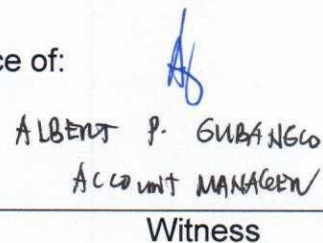 ce of:
ALBERT P. GUBANGCO
ACCOUNT MANAGER
Witness